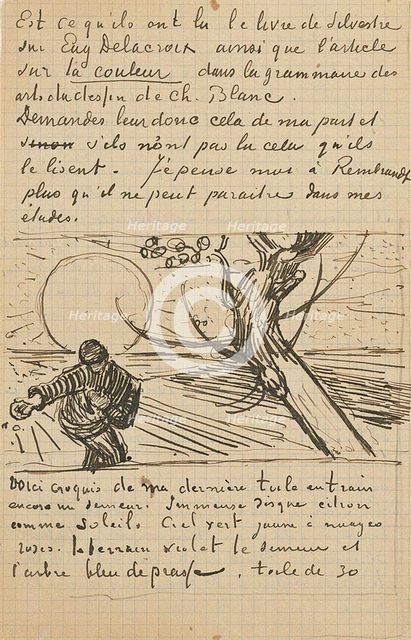 Est ce qu'ils ont lu le livre de Silvestre
sur Eug Delacroix ainsi que l'article
sur la couleur dans la grammaire des
arts du dessin de Ch. Blanc.
Demandes leur donc cela de ma part et
sinon s'ils n'ont pas lu cela qu'ils
le lisent. J'épense moi à Rembrandt
plus qu'il ne peut paraitre dans mes
études.
Heritage Heritage
Heritage Heritage Heritage
Heritage Heritage
Voici croquis de ma dernière toile en train
encore un semeur. Immense disque citron
comme soleil. Ciel vert jaune à nuages
roses. le terrain violet le semeur et
l'arbre bleu de prusse. toile de 30